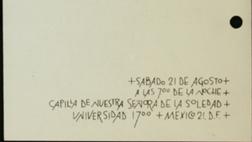 +SABADO 21 DE AGOSTO+
A LAS 7°° DE LA NOCHE+
CAPILLA DE NUESTRA SEÑORA DE LA SOLEDAD+
UNIVERSIDAD 1700 +MEXICO 21. D.F.+